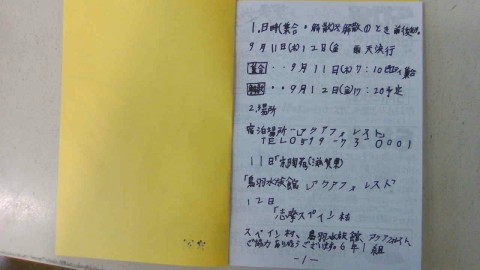 1.日時(集合・解散)※解散のとき前後
9月11日(木)12日(金 雨天決行
集合・・9月11日(木)7:10 集合
解散・・9月12日(金)17:20予定
2.場所
宿泊場所-アクアフォレスト
TEL0599-73-0001
11日「京陶苑(滋賀県)
「鳥羽水族館 アクアフォレスト
12日
「志摩スペイン村
スペイン村、鳥羽水族館、アクアフォレスト、
ご協力ありがとうございました。6年1組
-1-